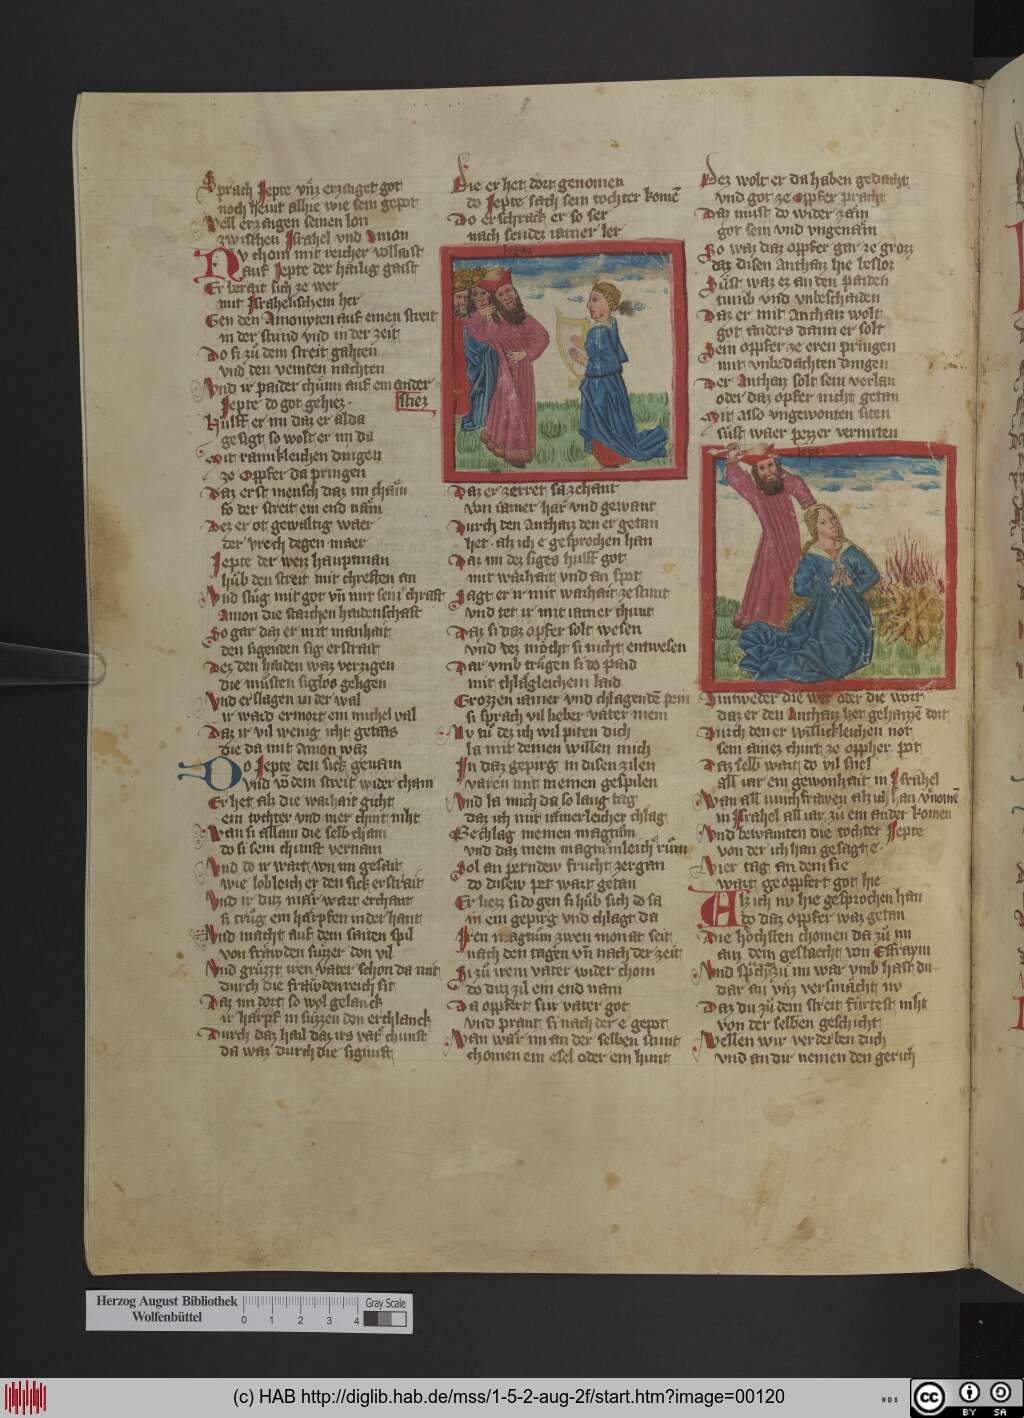 Sprach Jepte vnͥz erzaiget got
noch hewt alhie wie sein gepot
Well erzaigen seinen lon
zwischen Jsrahel vnd Amon
Nv chom mit reicher vollaist
auf Jepte der hailig gaist
Er berait sich ze wer
mit Jsrahelischem her
Gen den Amonyten auf einen streit
in der stund vnd in der zeit
Do si zů dem streit gahten
vnd den veinten nachten
Vnd ir paider chünn auf ein ander
stiez
Jepte do got gehiez
Hulff er im daz er alda
gesigt so wolt er im da
Mit rainikleichen dingen
ze Oppfer da pringen
Daz erst mensch daz im chäm
so der streit ein end näm
Dez er ot gewaltig waer
der vrech degen maer
Jepte der werz hauptman
hůb den streit mit chreften an
Vnd slůg mit got vn̄ mit seiner chraft
Amon die starchen haidenschaft
So gar daz er mit manhait
den sigenden sig erstrait
Dez den haiden waz verzigen
die můsten siglos geligen
Vnd erslagen in der wal
ir ward ermort ein michel val
Daz ir vil wenig icht genas
die da mit Amon waz
Do Jepte den sick genam
vnd vō dem streit wider cham
Er het alz die warhait gicht
ein tochter vnd mer chint niht
Wan si allain die selb cham
do si sein chunft vernam
Vnd do ir wart von im gesait
wie lobleich er den sick erstrait
Vnd ir ditz mär wart erchant
si trůg ein härpfen in der hant
Vnd macht auf dem saiten spil
von fräwden suzzer don vil
Vnd grůzzt iren vater schon da mit
durch die fräwdenreich sit
Daz im dort so wol gelanck
ir härpf in suzzen don erchlanck
Durch daz hail daz irs vater chunft
da waz durch die sigunft
Die er het dort genomen
do Jepte sach sein tochter komē
Do erschrack er so ser
nach sender iamer ler
Jepte
Daz er zerret sa zehant
von iamer har vnd gewant
Durch den Anthaiz den er getan
het · alz ich e gesprochen han
Daz im dez siges hulff got
mit warhait vnd an spot
Sagt er ir mit warhait ze stunt
vnd tet ir mit iamer chunt
Daz si daz opfer solt wesen
vnd dez möcht si nicht entwesen
Dar vmb trůgen si do paid
mit chlägleichem laid
Grozzen iamer vnd chlagende pein
si sprach vil lieber vater mein
Nv tů dez ich wil piten dich
la mit deinen willen mich
In daz gepirg in disen zilen
varen mit meinen gespilen
Vnd la mich da so lang tag
daz ich mit iämerleicher chlag
Bechlag meinen magtům
vnd daz mein magtůmleich rům
Sol an pernder frucht zergan
do diser pet wart getan
Er liezz si do gen si hůb sich do sa
in ein gepirg vnd chlagt da
Jren magtům zwen monat seit
nach den tagen vn̄ nach der zeit
Si zů irem vater wider chom
do ditz zil ein end nam
Da oppfert sin vater got
vnd prant si nach der e gepot
Wan wär im an der selben stunt
chomen ein esel oder ein hunt
Dez wolt er da haben gedacht
vnd got ze Oppfer pracht
Daz můst do wider zäm
got sein vnd vngenäm
So waz daz oppfer gar ze groz
daz disen Anthaiz hie besloz
Süst waz ez an den paiden
tumb vnd vnbeschaiden
Daz er mit Anthaiz wolt
got anders dann er solt
Sein oppfer ze eren pringen
mit vnbedächten dingen
Der Anthaiz solt sein verlan
oder daz opfer nicht getan
Mit also vngewonten siten
süst waer pezzer vermiten
Jepte
Eintweder die wer oder die wort
daz er den Anthaiz het gehaizzē dort
Durch den er willickleichen not
sein ainez chint ze oppher pot
Daz selb wart do vil snel
all iar ein gewonhait in Jsrahel
Wan all iunchfrawen alz ich han vnomē
in Jsrahel all iar zů ein ander komen
Vnd bewainten die tochter Jepte
von der ich han gesagt e
Vier tag an dem sie
wart geoppfert got hie
Alz ich nv hie gesprochen han
do daz oppfer waz getan
Die höchsten chomen da zů im
auz dem geslaecht von Effraym
Vnd sprachen zů im war vmb hast du
dar an vnz versmächt nv
Daz du zů dem streit fůrtest niht
von der selben geschicht
Wellen wir verderben dich
vnd an dir nemen den gerich
Herzog August Bibliothek
Wolfenbüttel
0 1 2 3 4
Gray Scale
(c) HAB http://diglib.hab.de/mss/1-5-2-aug-2f/start.htm?image=00120
WDB
cc
BY SA